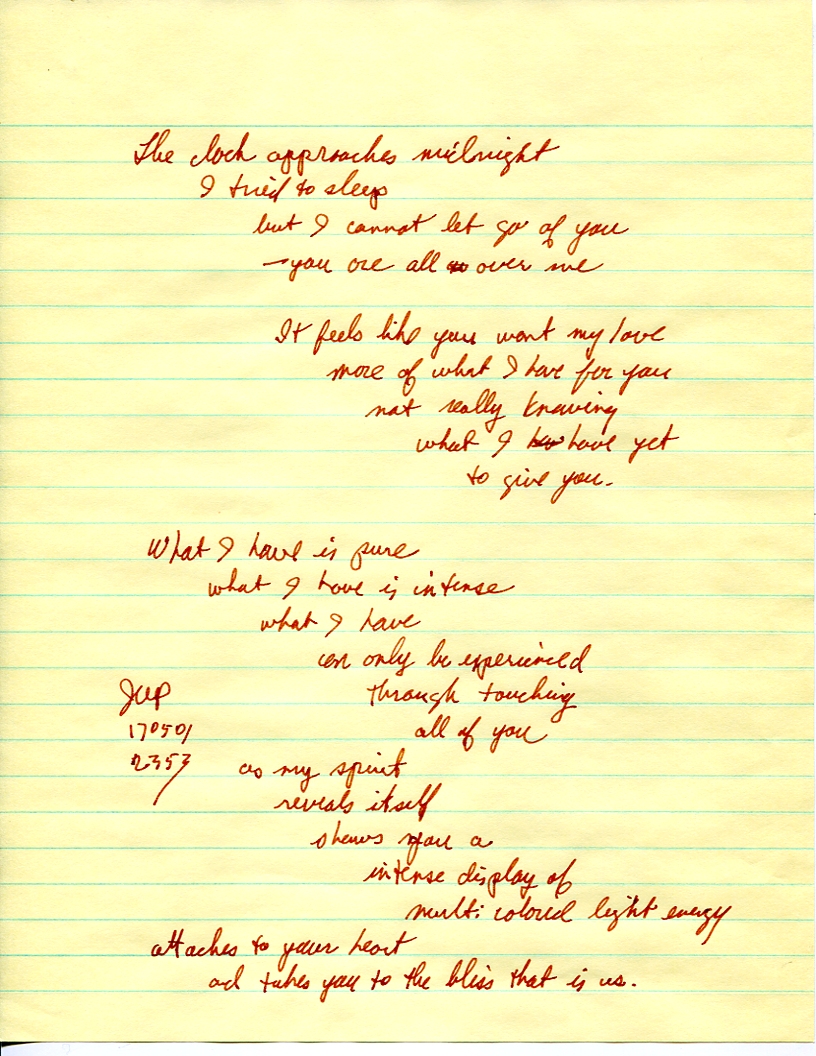 The clock approaches midnight
I tried to sleep
but I cannot let go of you
—you are all over me
It feels like you want my love
more of what I have for you
not really knowing
what I have yet
to give you.
What I have is pure
what I have is intense
what I have
can only be experienced
through touching
all of you
JWP
170501
2353
as my spirit
reveals itself
shows you a
intense display of
multi colored light energy
attaches to your heart
ad takes you to the bliss that is us.